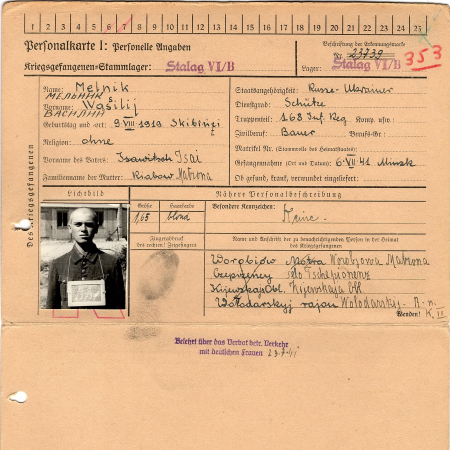 1 2 3 4 5 6 7 8 9 10 11 12 13 14 15 16 17 18 19 20 21 22 23 24 25
Personalkarte I: Personelle Angaben
Beschriftung der Erkennungsmarke
Nr. 23739
353
Kriegsgefangenen-Stammlager: Stalag VI/B
Lager: Stalag VI/B
Des Kriegsgefangenen
Name: Melnik
МЕЛЬНИК
Vorname: Wasilij
ВАСИЛИЙ
Geburtstag und -ort: 9.VIII 1919
Religion: ohne
Vorname des Vaters: Isai
Familienname der Mutter: Matrona
Staatsangehörigkeit: Russe-Ukrainer
Dienstgrad: Schütze
Truppenteil: 168 Inf. Reg. Komp. usw.:
Zivilberuf: Bauer Berufs-Gr.:
Matrikel Nr. (Stammrolle des Heimatstaates):
Gefangennahme (Ort und Datum): 6.VII 41 Minsk
Ob gesund, krank, verwundet eingeliefert:
Lichtbild
Nähere Personalbeschreibung
Größe Haarfarbe
1,65 blond
Besondere Kennzeichen:
Keine.
Fingerabdruck
des rechten! Zeigefingers
Name und Anschrift der zu benachrichtigenden Person in der Heimat
des Kriegsgefangenen
Motra Matrona
Kijewskaja Obl.
Wolodarskyj rajon
Wenden!
Belehrt über das Verbot betr. Verkehr
mit deutschen Frauen